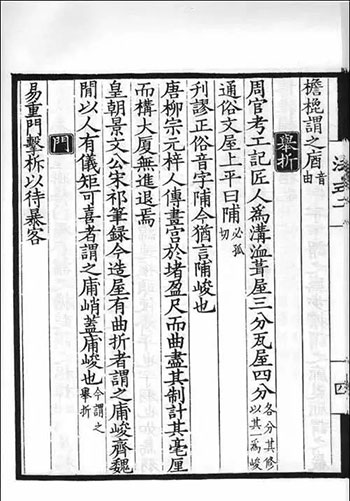 檐㮰謂之庮音由
舉折
周官考工記匠人為溝洫葺屋三分瓦屋四分各分其修以其一為峻
通俗文屋上平曰陠必孤切
刊謬正俗音字陠今猶言陠峻也
唐柳宗元梓人傳畫宮於堵盈尺而曲盡其制計其毫厘
而構大厦無進退焉
皇朝景文公宋祁筆録今造屋有曲折者謂之庯峻齊魏
間以人有儀矩可喜者謂之庯峭蓋庯峻也今謂之舉折
門
易重門擊柝以待暴客
四